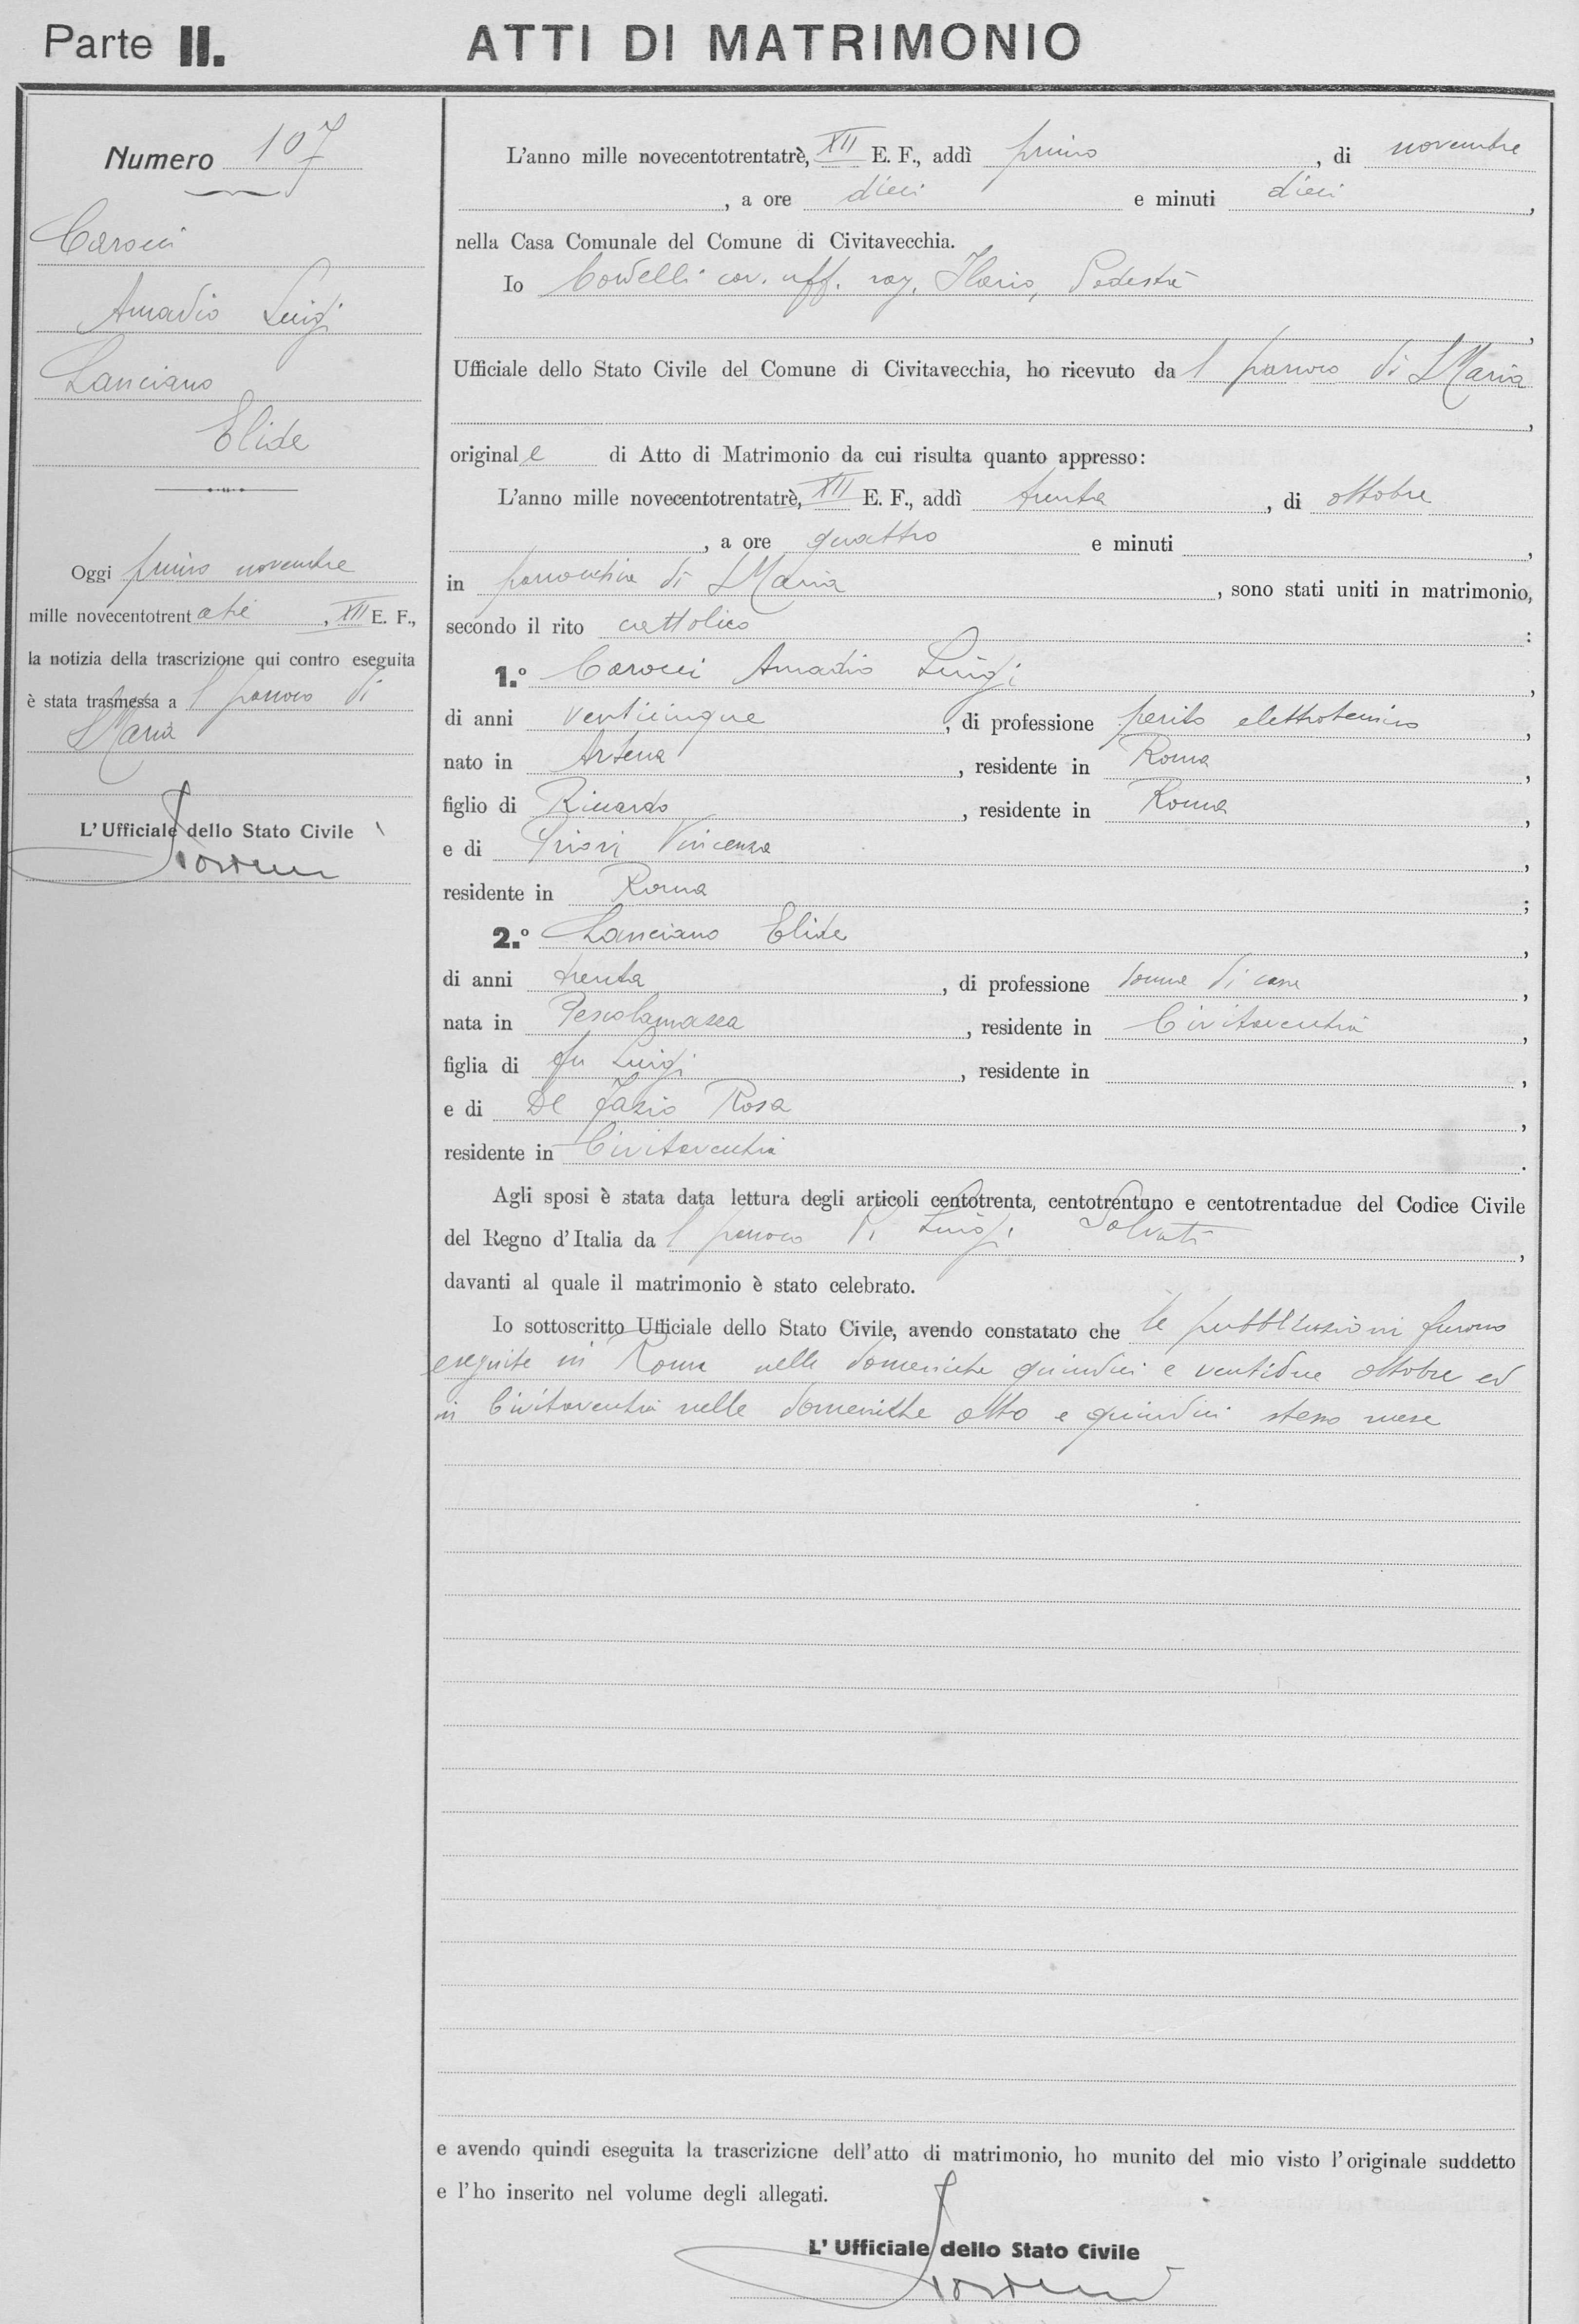 Parte II.
ATTI DI MATRIMONIO
Numero 107
Carocci
Amadio Luigi
Lanciano
Elide
Oggi primo novembre
mille novecentotrentatré, XII E. F.,
la notizia della trascrizione qui contro eseguita
è stata trasmessa a l parroco di
S Maria
L'Ufficiale dello Stato Civile
L'anno mille novecentotrentatrè, XII E. F., addì primo, di novembre
, a ore dieci e minuti dieci,
nella Casa Comunale del Comune di Civitavecchia.
Io Cordelli cav. uff. rag. Ilario, Podestà
,
Ufficiale dello Stato Civile del Comune di Civitavecchia, ho ricevuto da l parroco di S Maria
,
originale di Atto di Matrimonio da cui risulta quanto appresso:
L'anno mille novecentotrentatrè, XII E. F., addì trenta, di ottobre
, a ore quattro e minuti ,
in parrocchia di S Maria, sono stati uniti in matrimonio,
secondo il rito cattolico:
1.° Carocci Amadio Luigi,
di anni venticinque, di professione perito elettrotecnico,
nato in Artena, residente in Roma,
figlio di Riccardo, residente in Roma,
e di Priori Vincenza,
residente in Roma;
2.° Lanciano Elide,
di anni trenta, di professione donna di casa,
nata in Pescolamazza, residente in Civitavecchia,
figlia di fu Luigi, residente in ,
e di De Fazio Rosa,
residente in Civitavecchia.
Agli sposi è stata data lettura degli articoli centotrenta, centotrentuno e centotrentadue del Codice Civile
del Regno d'Italia da l parroco Luigi Salvati,
davanti al quale il matrimonio è stato celebrato.
Io sottoscritto Ufficiale dello Stato Civile, avendo constatato che le pubblicazioni furono
eseguite in Roma nelle domeniche quindici e ventidue ottobre ed
in Civitavecchia nelle domeniche otto e quindici stesso mese
e avendo quindi eseguita la trascrizione dell'atto di matrimonio, ho munito del mio visto l'originale suddetto
e l'ho inserito nel volume degli allegati.
L'Ufficiale dello Stato Civile